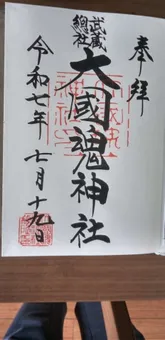 奉拝
武蔵
總社
大國魂神社
令和七年七月十九日